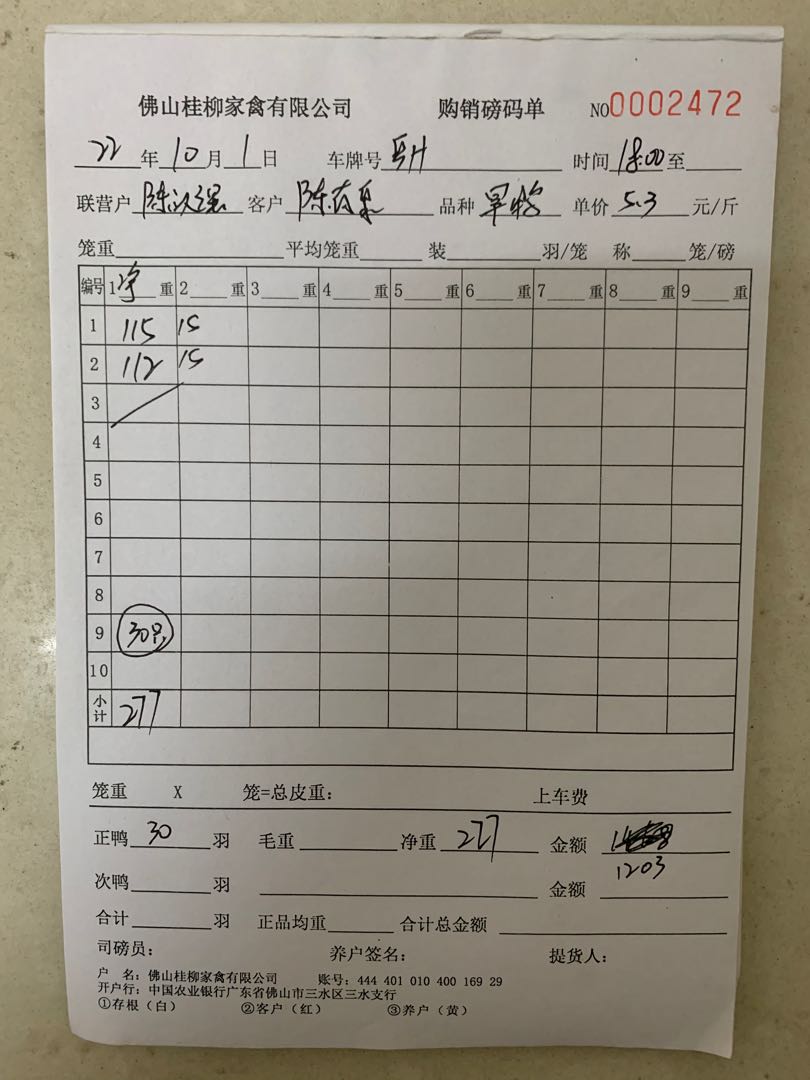 佛山桂柳家禽有限公司 购销磅码单 NO0002472
22年10月1日 车牌号 时间18:00至
联营户 陈 客户 陈 品种 单价5.3元/斤
笼重 平均笼重 装 羽/笼 称 笼/磅
编号 1净重 2 重 3 重 4 重 5 重 6 重 7 重 8 重 9 重
1 115 15
2 112 15
3
4
5
6
7
8
9 30只
10
小计 277
笼重 X 笼=总皮重: 上车费
正鸭30羽 毛重 净重277 金额
1203
次鸭 羽 金额
合计 羽 正品均重 合计总金额
司磅员: 养户签名: 提货人:
户 名: 佛山桂柳家禽有限公司 账号: 444 401 010 400 169 29
开户行: 中国农业银行广东省佛山市三水区三水支行
①存根(白) ②客户(红) ③养户(黄)